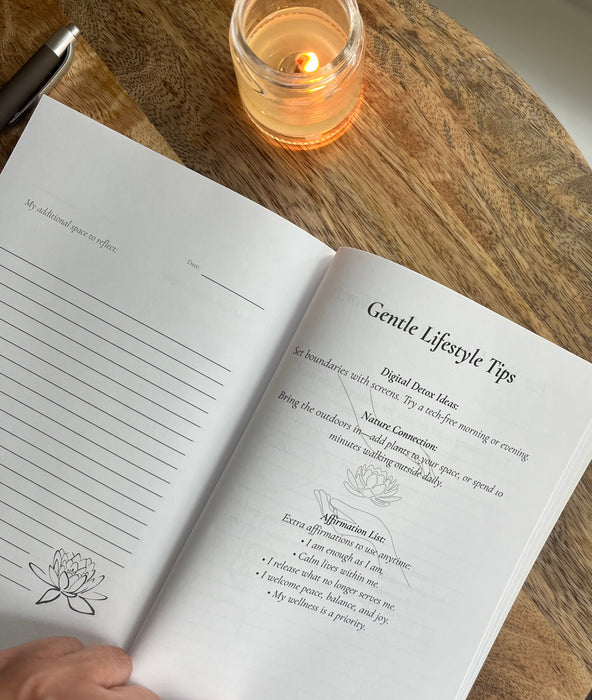 My additional space to reflect.
Date:
Gentle Lifestyle Tips
Digital Detox Ideas:
Set boundaries with screens. Try a tech-free morning or evening.
Nature Connection:
Bring the outdoors in—add plants to your space, or spend 10
minutes walking outside daily.
Affirmation List:
Extra affirmations to use anytime:
• I am enough as I am.
• Calm lives within me.
• I release what no longer serves me.
• I welcome peace, balance, and joy.
• My wellness is a priority.